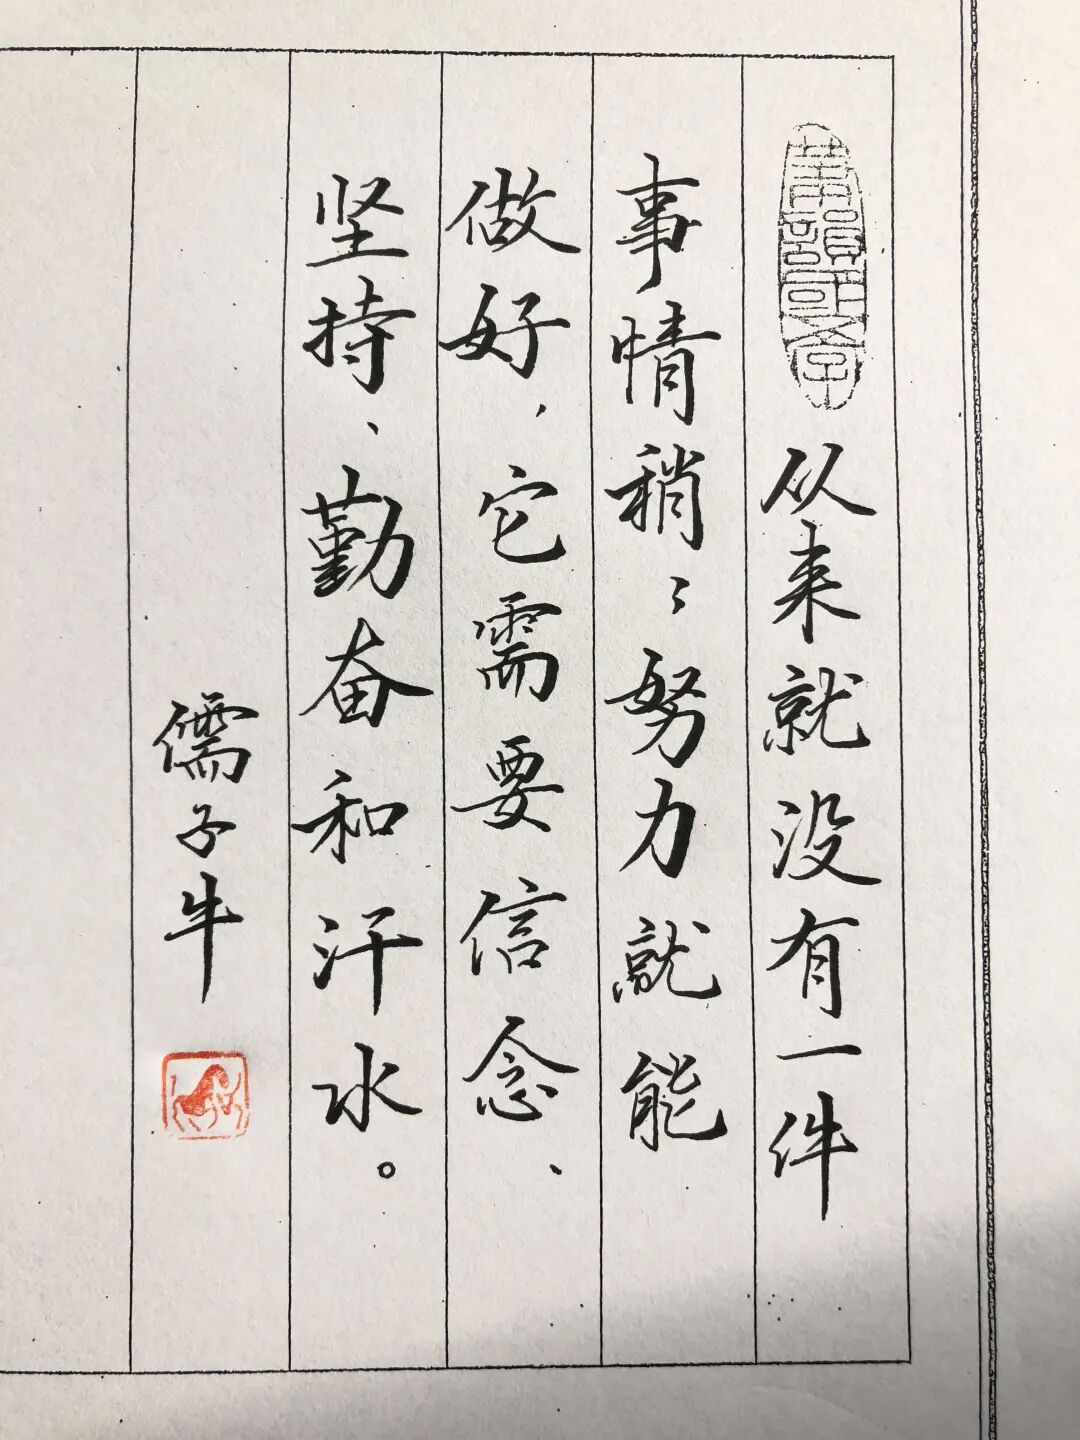 从来就没有一件
事情稍々努力就能
做好，它需要信念、
坚持、勤奋和汗水。
儒子牛